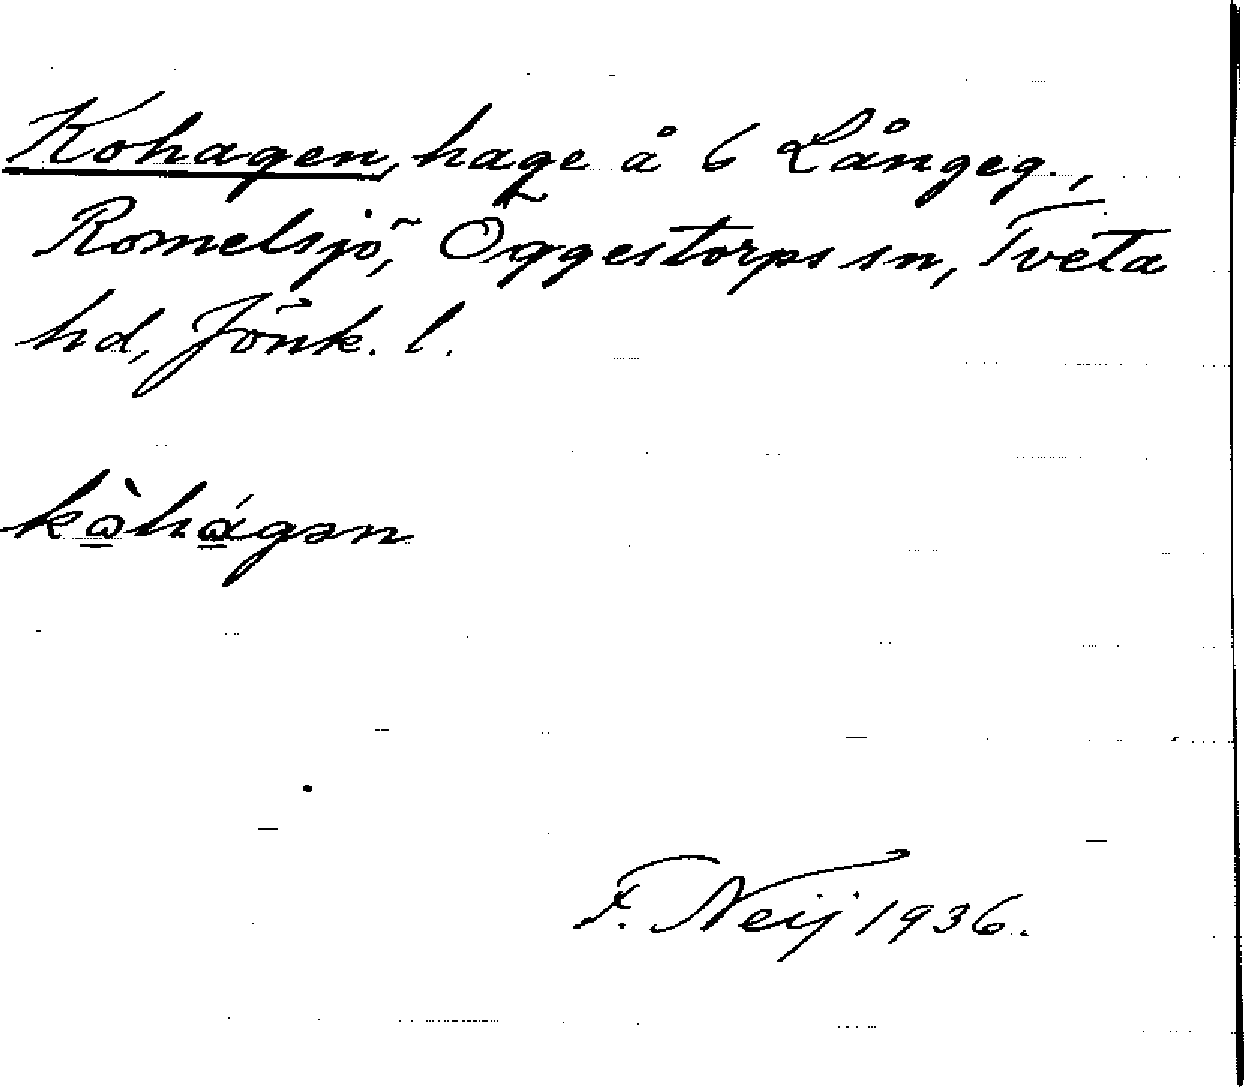 Kohagen, hage å 6 Långeg.,
Romelsjö, Öggestorps sn, Tveta
hd, Jönk. l.
kò̱há̱gən
F. Neij 1936.